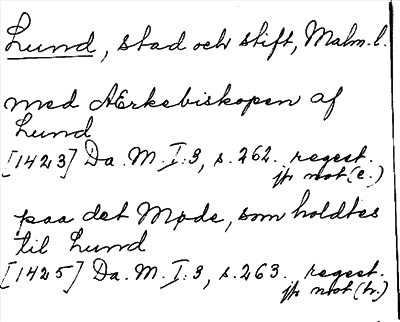 Lund, stad och stift, Malm. l.
med Ærkebiskopen af
Lund
[1423] Da. M. I:3, s. 262. regest.
jfr not (e.)
paa det Møde, som holdtes
til Lund
[1425] Da. M. I:3, s. 263. regest.
jfr not (h.)